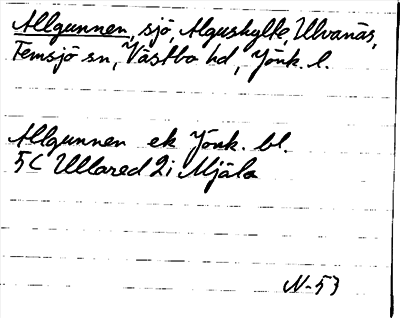 Allgunnen, sjö, Alguskylte, Ulvanäs,
Femsjö sn, Västbo hd, Jönk. l.
Allgunnen ek Jönk. bl.
5C Ullared 2i Mjäla
N-53